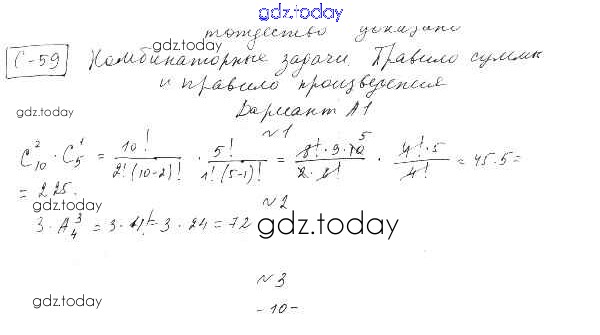 gdz.today
тождество доказано
gdz.today
С-59 Комбинаторные задачи. Правило суммы
и правило произведения
gdz.today
Вариант А1
№1
C₁₀² · C₅¹ = 10! / 2!(10-2)! · 5! / 1!(5-1)! = 8!·9·10 / 2·8! · 4!·5 / 4! = 45·5 =
= 225.
gdz.today
№2
3·A₄³ = 3·4! = 3·24 = 72
gdz.today
№3
gdz.today
-10-